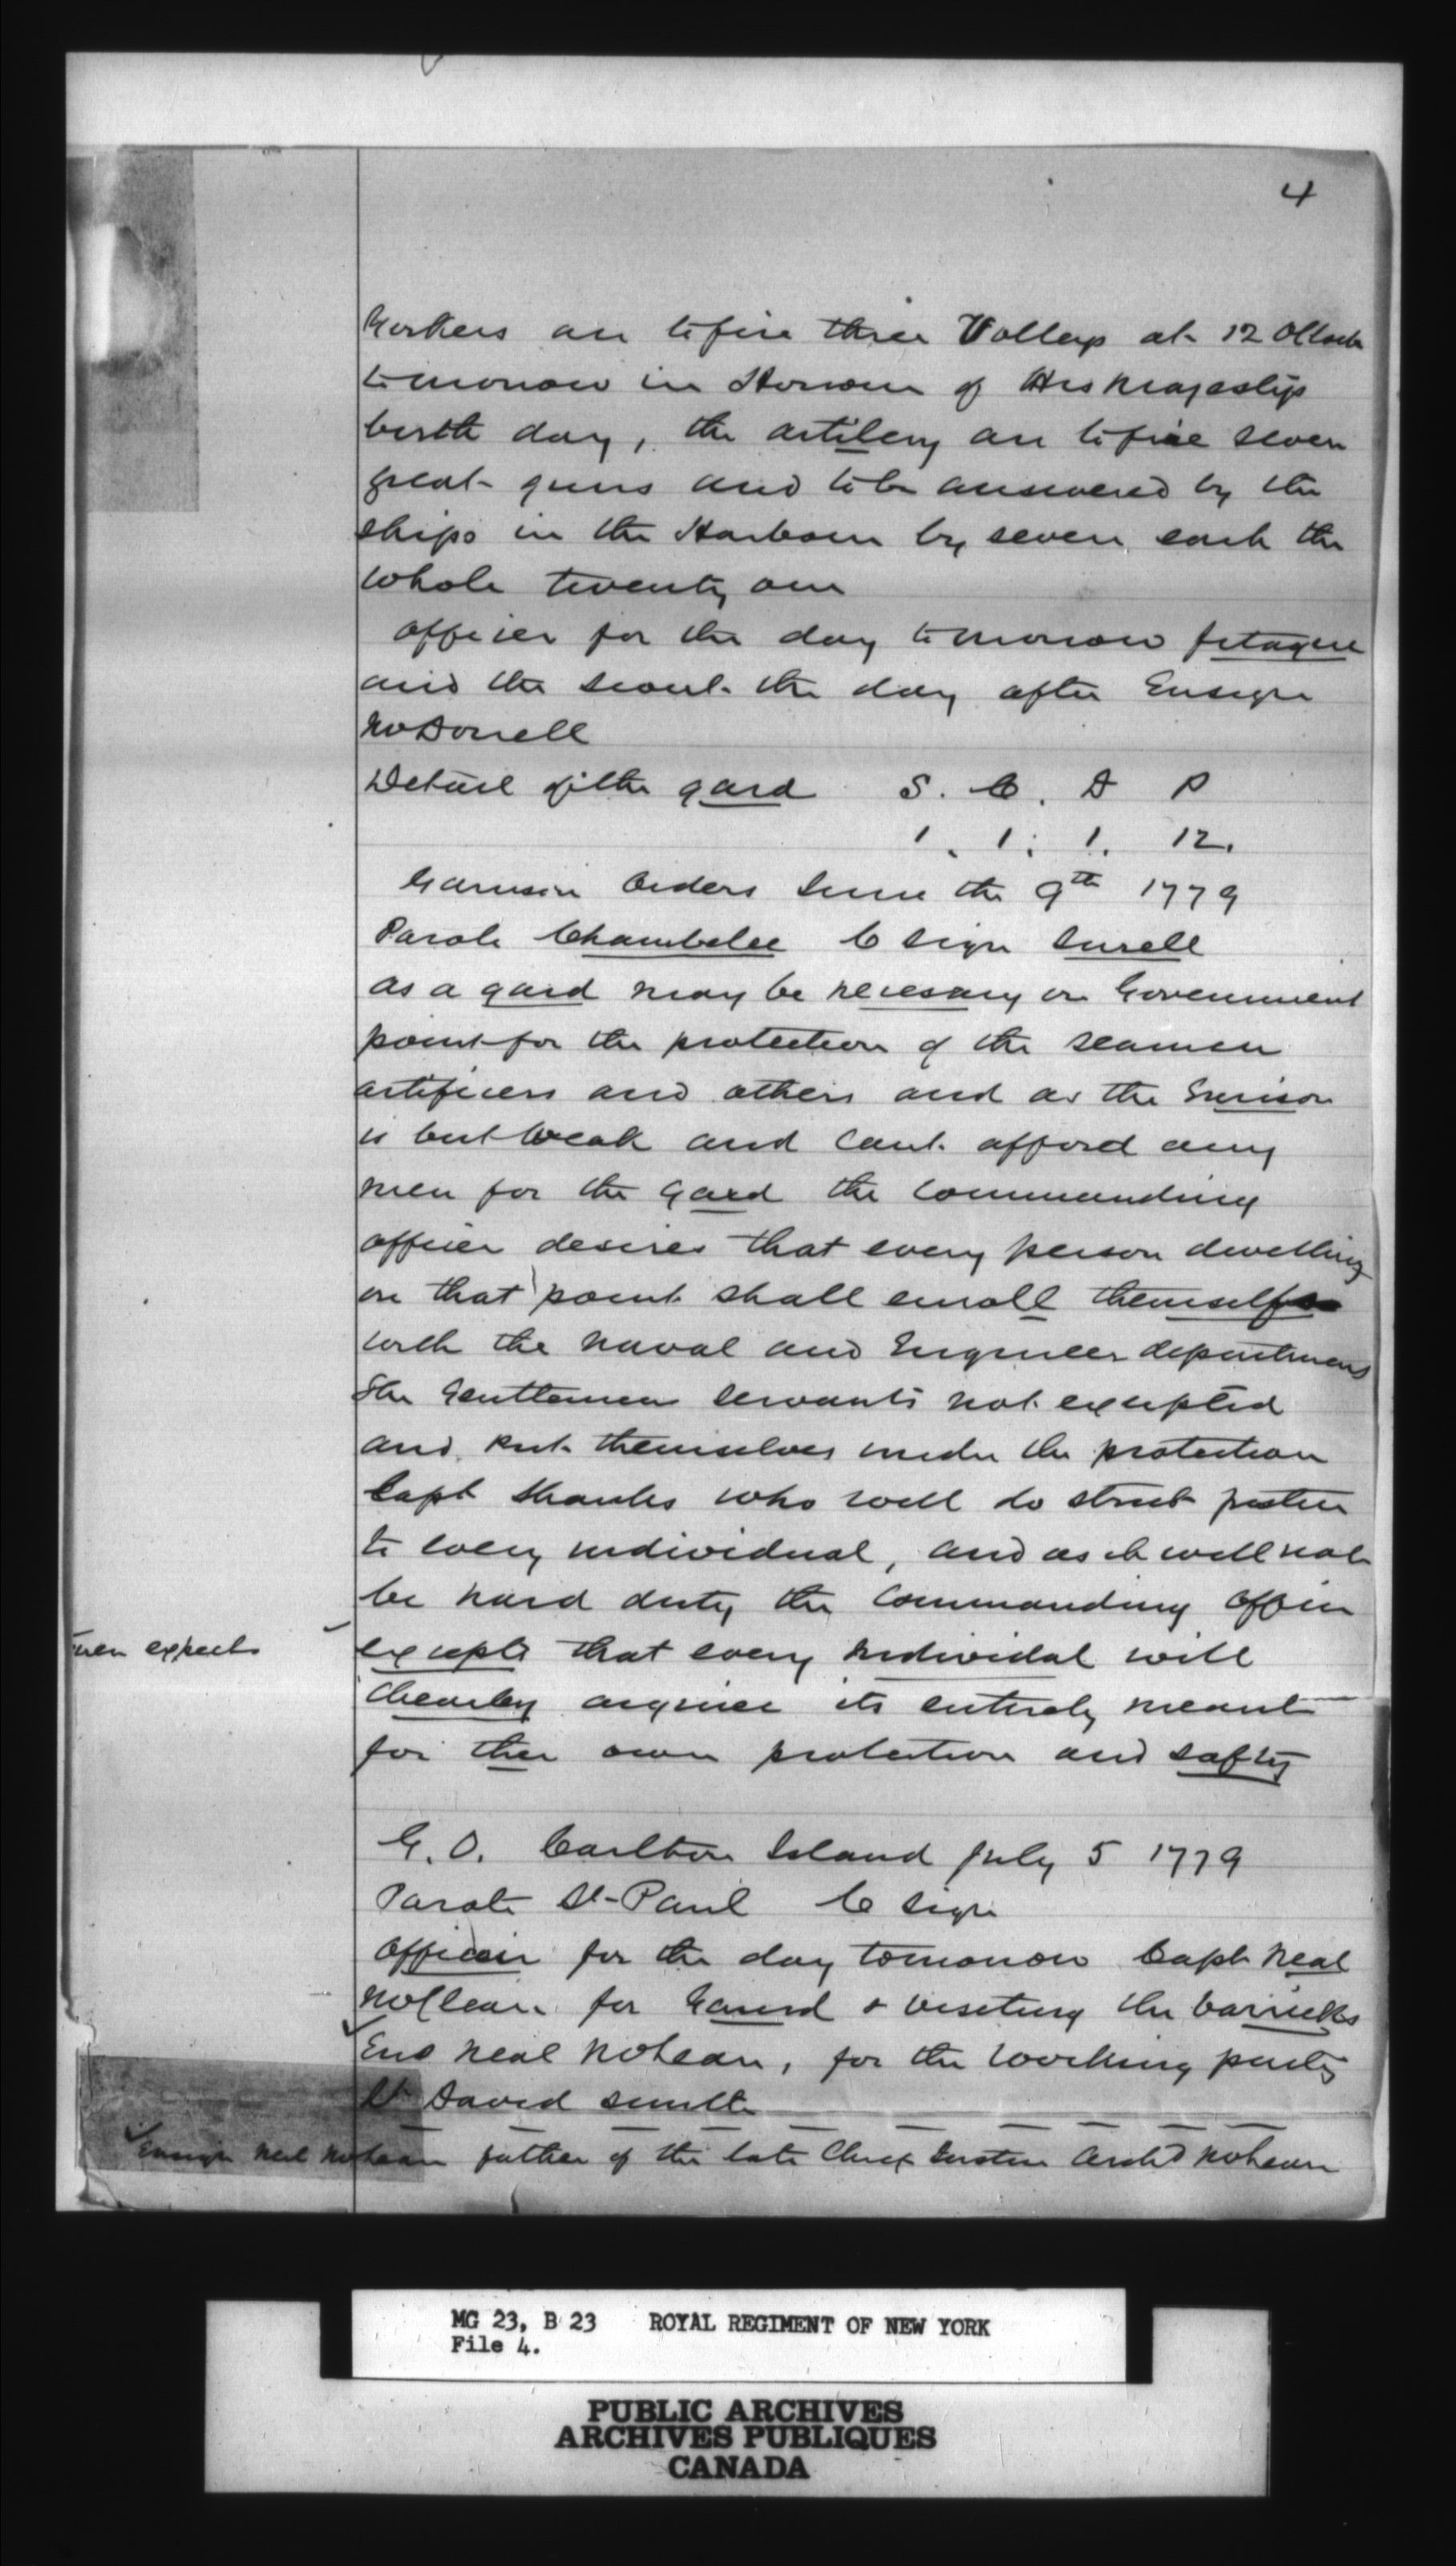 4
Yorkers are to fire three Volleys at 12 OClock
tomorow in Honour of His Majestys
birth day, the artilery are to fire seven
great guns and to be answered by the
ships in the Harbour by seven each the
whole twenty one
officer for the day tomorow fitague
and the scout the day after Ensign
McDonell
Detail of the gard S. C. D P
1. 1: 1. 12.
Garrison Orders June the 9th 1779
Parole Chambelee C sign Surell
as a gard may be necessary on Government
point for the protection of the seamen
artificers and others and as the
is but weak and cant afford any
men for the gard the Commanding
officer desires that every person dwelling
on that point shall enroll themself
with the naval and Engineer department
The Gentlemen servants not excepted
and put themselves under the protection
Capt Shanks who will do strict justice
to every individual, and as it will not
be hard duty the Commanding Officer
men expects
excepts that every individal will
chearley acquiee its entirely meant
for ther own protection and safty
G. O. Carlton Island July 5 1779
Parole St-Paul C sign
Officer for the day tomorow Capt Neal
McClean for Gaurd & viseting the barricks
Ens Neal McLean, for the working party
Lt David Smith
Ensign Neil McLean father of the late Chief Justice Archd McLean
MG 23, B 23 ROYAL REGIMENT OF NEW YORK
File 4.
PUBLIC ARCHIVES
ARCHIVES PUBLIQUES
CANADA